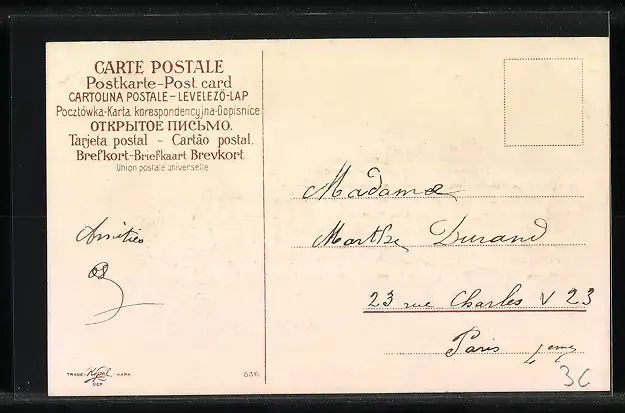 CARTE POSTALE
Postkarte-Post card
CARTOLINA POSTALE-LEVELEZŐ-LAP
Pocztówka-Karta korespondencyjna-Dopisnice
ОТКРЫТОЕ ПИСЬМО.
Tarjeta postal - Cartão postal.
Brefkort-Briefkaart Brevkort
Union postale universelle
Amitiés
Madame
Marthe Durand
23 rue Charles V 23
Paris 4eme
TRADE- MARK
DEP
636
3C